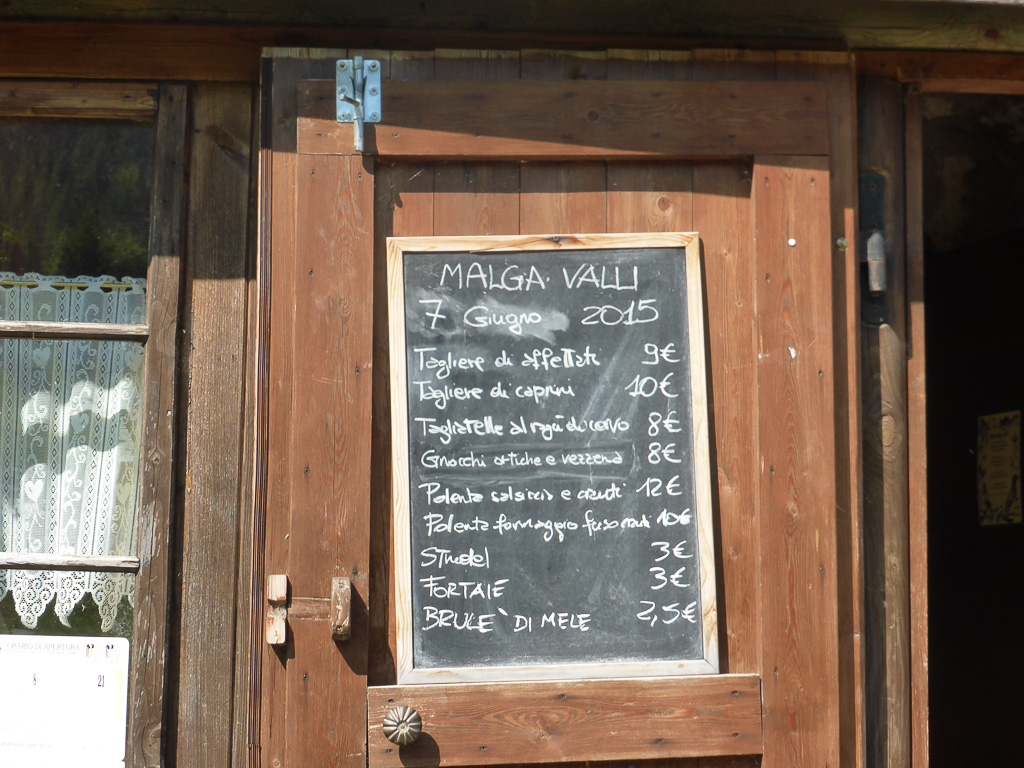 MALGA VALLI
7 Giugno 2015
Tagliere di affettati 9€
Tagliere di caprini 10€
Tagliatelle al ragù di cervo 8€
Gnocchi ortiche e vezzena 8€
Polenta salsiccia e crauti 12€
Polenta formaggio fuso 10€
STRUDEL 3€
FORTAIE 3€
BRULE' DI MELE 2,5€
ORARIO DI APERTURA
8 21